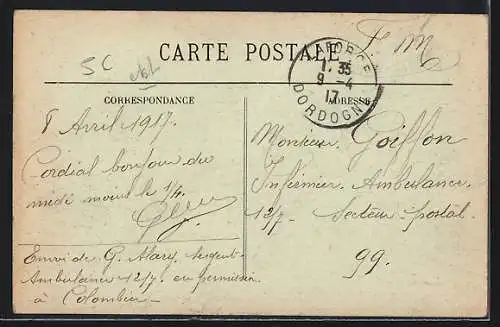 5C
CARTE POSTALE
F. M.
LAFORCE
7. 35
9 -4
17
DORDOGNE
CORRESPONDANCE
ADRESSE
8 Avril 1917.
Cordial bonjour du
midi moins le 1/4.
Envoi de G. Alary, sergent
Ambulance 12/7 en permission
à Colombier
Monsieur Goiffon
Infirmier. Ambulance.
12/7. Secteur postal.
99.